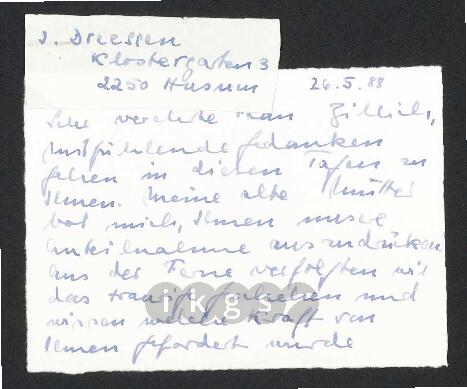 J. Dreessen
Klostergarten 3
2250 Husum
26.5.88
Sehr verehrte Frau Zillich,
mitfühlende Gedanken
gehen in diesen Tagen zu
Ihnen. Meine alte Mutter
bat mich, Ihnen unsere
Anteilnahme auszudrücken
aus der Ferne verfolgten wir
das traurige Geschehen und
wissen welche Kraft von
Ihnen gefordert wurde
ikgs